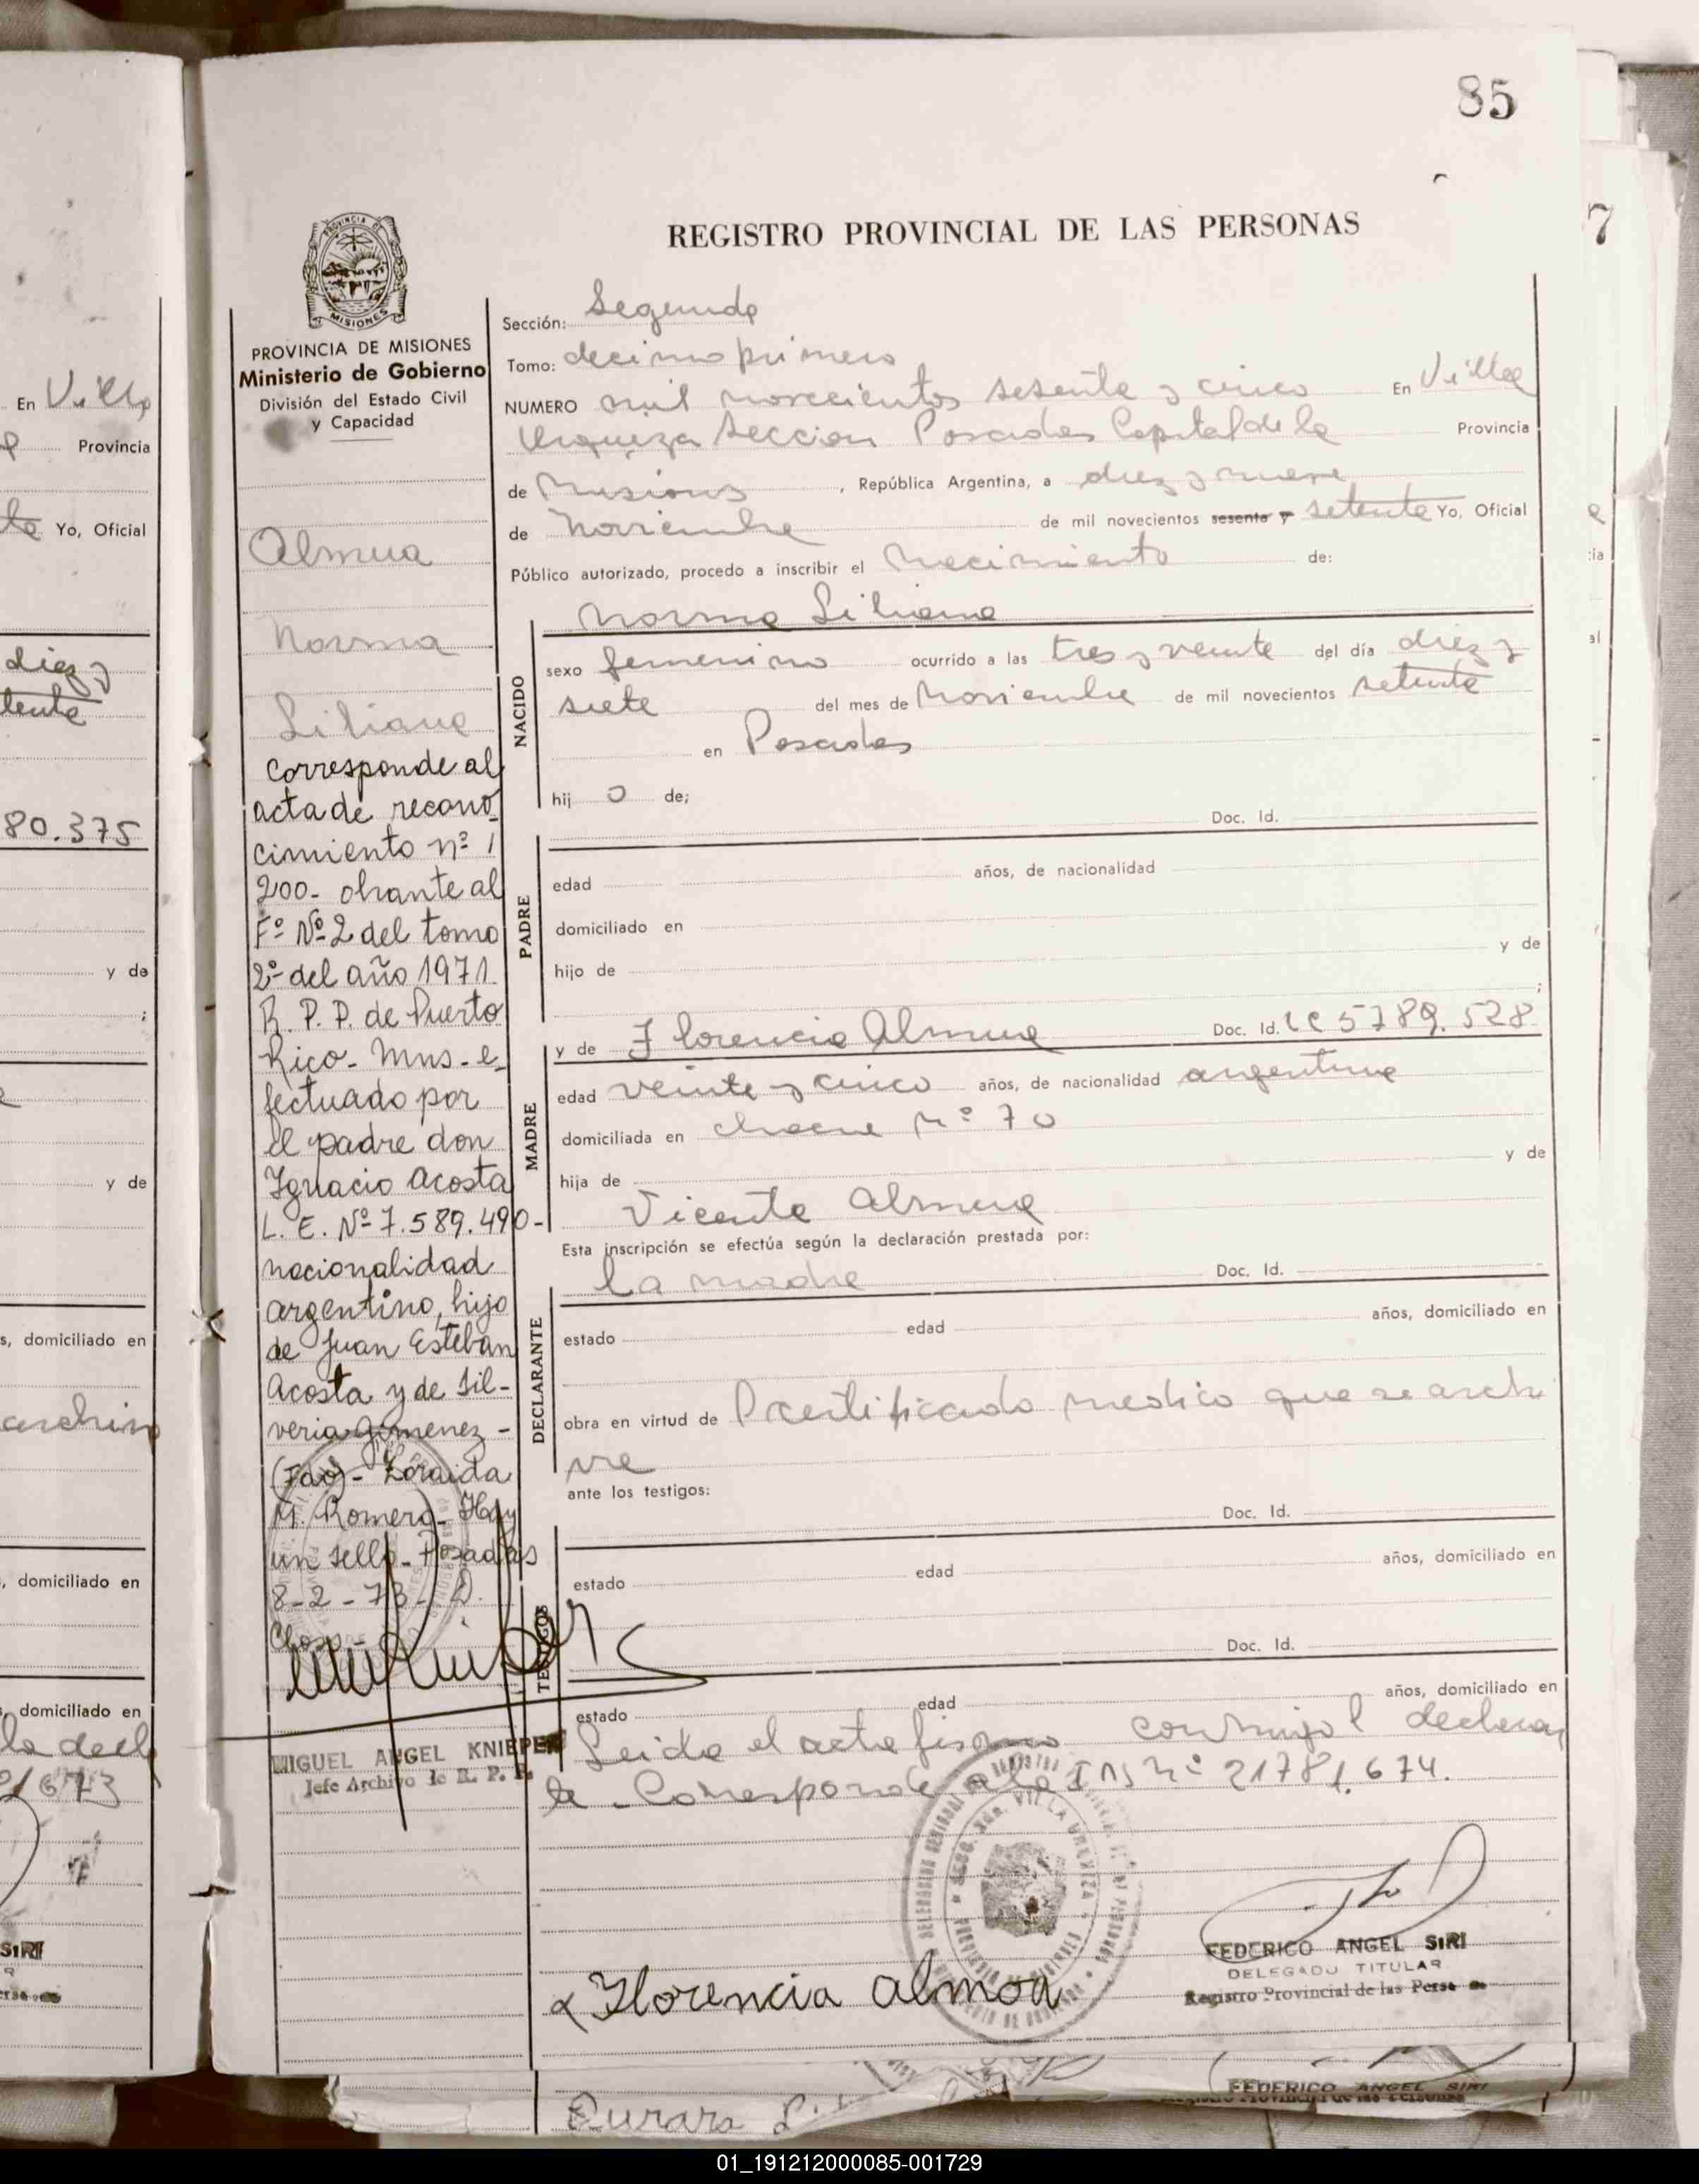 85
REGISTRO PROVINCIAL DE LAS PERSONAS
7
PROVINCIA DE MISIONES
Ministerio de Gobierno
División del Estado Civil
y Capacidad
Almua
Norma
Liliana
Corresponde al
acta de recono
cimiento nº 1
200- obrante al
Fº Nº 2 del tomo
2º del año 1971
R. P. P. de Puerto
Rico- Mns- e
fectuado por
el padre don
Ignacio Acosta
L. E. Nº 7.589.490-
nacionalidad
argentino, hijo
de Juan Esteban
Acosta y de Sil-
veria Gimenez -
(Fdo)- Zoraida
M. Romero- Hay
un sello- Posadas
8-2-73-
MIGUEL ANGEL KNIEPER
Jefe Archivo de R. P. P.
Sección: Segunda
Tomo: decimo primero
NUMERO mil novecientos sesenta y cinco En Villa
Urquiza Seccion Posadas Capital de la Provincia
de Misiones, República Argentina, a diez y nueve
de Noviembre de mil novecientos sesenta y setenta Yo, Oficial
Público autorizado, procedo a inscribir el Nacimiento de:
Norma Liliana
NACIDO
sexo femenino ocurrido a las tres y veinte del día diez y
siete del mes de Noviembre de mil novecientos setenta
en Posadas
hij o de;
Doc. Id.
PADRE
edad años, de nacionalidad
domiciliado en
hijo de y de
;
MADRE
y de Florencia Almua Doc. Id. LC 5789.528
edad veinte y cinco años, de nacionalidad argentina
domiciliada en chacra Nº 70
hija de y de
Vicenta Almua
Esta inscripción se efectúa según la declaración prestada por:
la madre Doc. Id.
DECLARANTE
estado edad años, domiciliado en
obra en virtud de certificado medico que se archi
va
ante los testigos:
Doc. Id.
TESTIGOS
estado edad años, domiciliado en
Doc. Id.
estado edad años, domiciliado en
Leida el acta firma conmigo l declaran
te - Corresponde a la INS Nº 21781.674.
Florencia almoa
FEDERICO ANGEL SIRI
DELEGADO TITULAR
Registro Provincial de las Perso
En Villa
Provincia
Yo, Oficial
diez y
80.375
y de
;
y de
s, domiciliado en
, domiciliado en
domiciliado en
SIRI
FEDERICO ANGEL SIRI
01_191212000085-001729